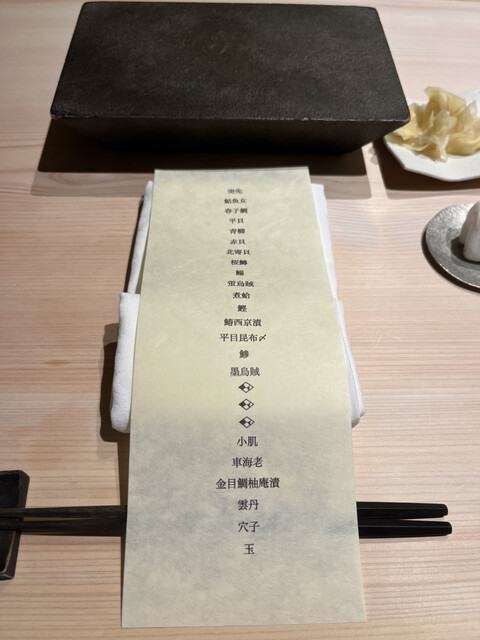 突先
鮎魚女
春子鯛
平貝
青柳
赤貝
北寄貝
桜鱒
鰯
蛍烏賊
煮蛤
鰹
鰆西京漬
平目昆布〆
鯵
墨烏賊
小肌
車海老
金目鯛柚庵漬
雲丹
穴子
玉